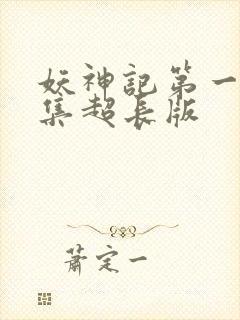 妖神記第一
集超長版
蕭定一